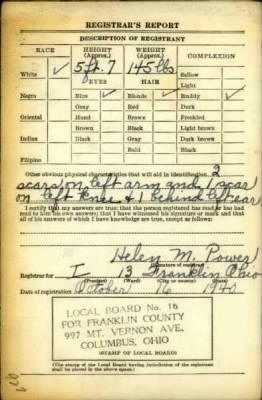 REGISTRAR'S REPORT
DESCRIPTION OF REGISTRANT
RACE HEIGHT (Approx.) WEIGHT (Approx.) COMPLEXION
White ✓ 5 ft. 7 145 lbs Sallow
EYES HAIR Light
Negro Blue ✓ Blonde ✓ Ruddy ✓
Gray Red Dark
Oriental Hazel Brown Freckled
Brown Black Light brown
Indian Black Gray Dark brown
Bald Black
Filipino
Other obvious physical characteristics that will aid in identification 2
scars on left arm and 1 scar
on left knee & 1 behind left ear
I certify that my answers are true; that the person registered has read or has had
read to him his own answers; that I have witnessed his signature or mark and that
all of his answers of which I have knowledge are true, except as follows:
Helen M. Power
(Signature of registrar)
Registrar for I 13 Franklin Ohio
(Precinct) (Ward) (City or county) (State)
Date of registration October 16 1940
LOCAL BOARD No. 16
FOR FRANKLIN COUNTY
997 MT. VERNON AVE.
COLUMBUS, OHIO
(STAMP OF LOCAL BOARD)
(The stamp of the Local Board having jurisdiction of the registrant
shall be placed in the above space.)